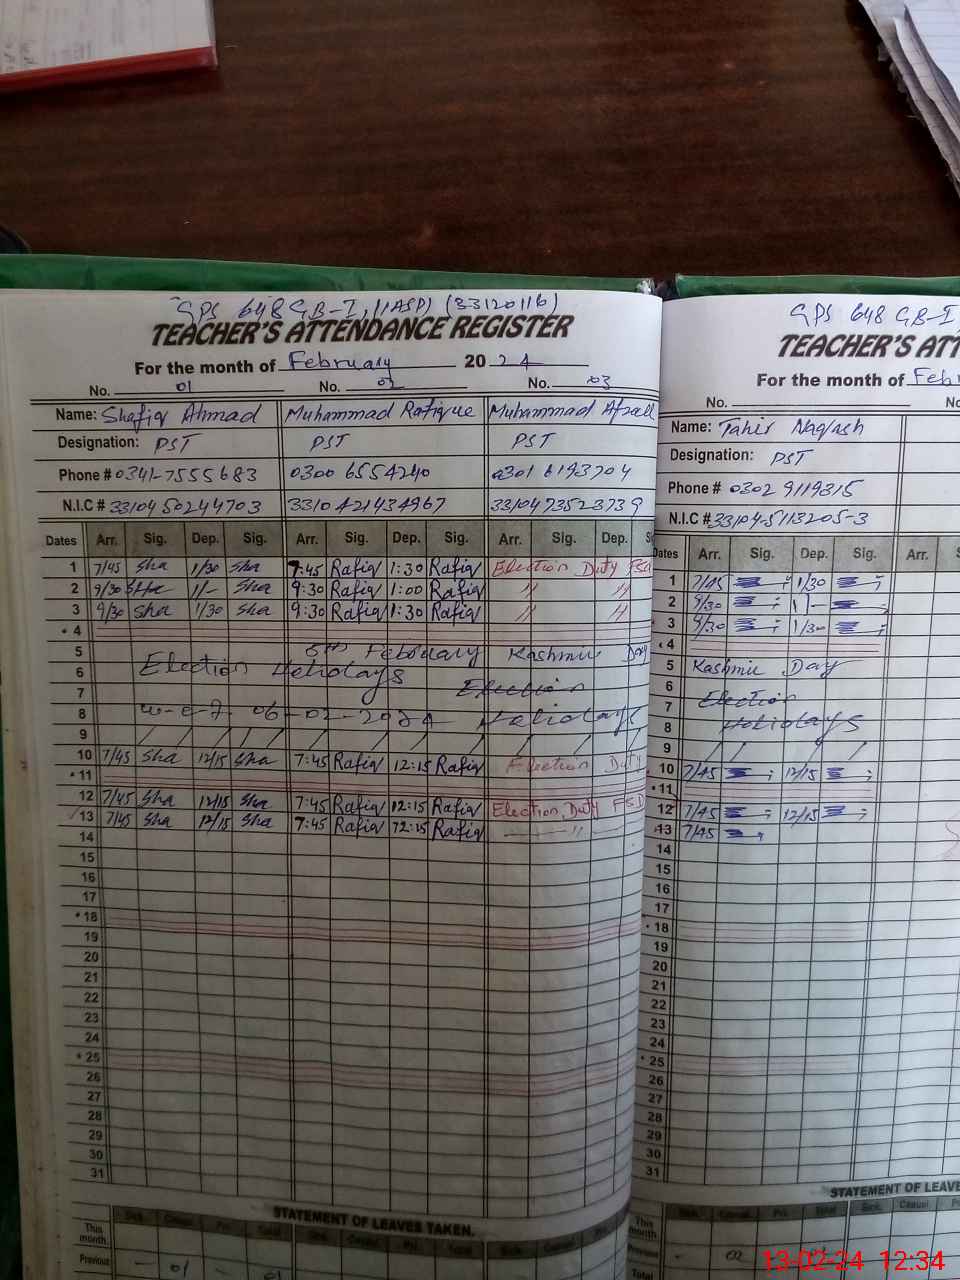 GPS 648 GB-I, (JASP) (33120116)
TEACHER'S ATTENDANCE REGISTER
For the month of February 2024
No. 01 No. 02 No. 03
Name: Shafiq Ahmad Muhammad Rafique Muhammad Afzall
Designation: PST PST PST
Phone # 0341-7555683 0300 6554240 0301 6193704
N.I.C # 3310450244703 3310421434967 3310473523739
Dates Arr. Sig. Dep. Sig. Arr. Sig. Dep. Sig. Arr. Sig. Dep.
1 7/45 Sha 1/30 Sha 7:45 Rafiq 1:30 Rafiq Election Duty FSD
2 9/30 Sha 1/- Sha 9:30 Rafiq 1:00 Rafiq " "
3 9/30 Sha 1/30 Sha 9:30 Rafiq 1:30 Rafiq " "
4
5 5th February Kashmir Day
6 Election Holidays
7 Election
8 w-e-f 06-02-2024 Holidays
9
10 7/45 Sha 12/15 Sha 7:45 Rafiq 12:15 Rafiq Election Duty
11
12 7/45 Sha 12/15 Sha 7:45 Rafiq 12:15 Rafiq Election Duty FSD
13 7/45 Sha 12/15 Sha 7:45 Rafiq 12:15 Rafiq "
14
15
16
17
18
19
20
21
22
23
24
25
26
27
28
29
30
31
STATEMENT OF LEAVES TAKEN.
Sick. Casual. Pri. Total Sick. Casual. Pri. Total Sick. Casual.
This month.
Previous - 01 01
GPS 648 GB-I,
TEACHER'S ATT
For the month of Febr
No. No
Name: Tahir Naqash
Designation: PST
Phone # 0302 9119815
N.I.C # 33104-5113205-3
Dates Arr. Sig. Dep. Sig. Arr.
1 7/45 1/30
2 9/30 1/-
3 9/30 1/30
4
5 Kashmir Day
6 Election
7
8 Holidays
9
10 7/45 12/15
11
12 7/45 12/15
13 7/45
14
15
16
17
18
19
20
21
22
23
24
25
26
27
28
29
30
31
STATEMENT OF LEAVE
Sick. Casual. Pri. Total Sick. Casual.
This month.
Previous - 02
Total
13-02-24 12:34